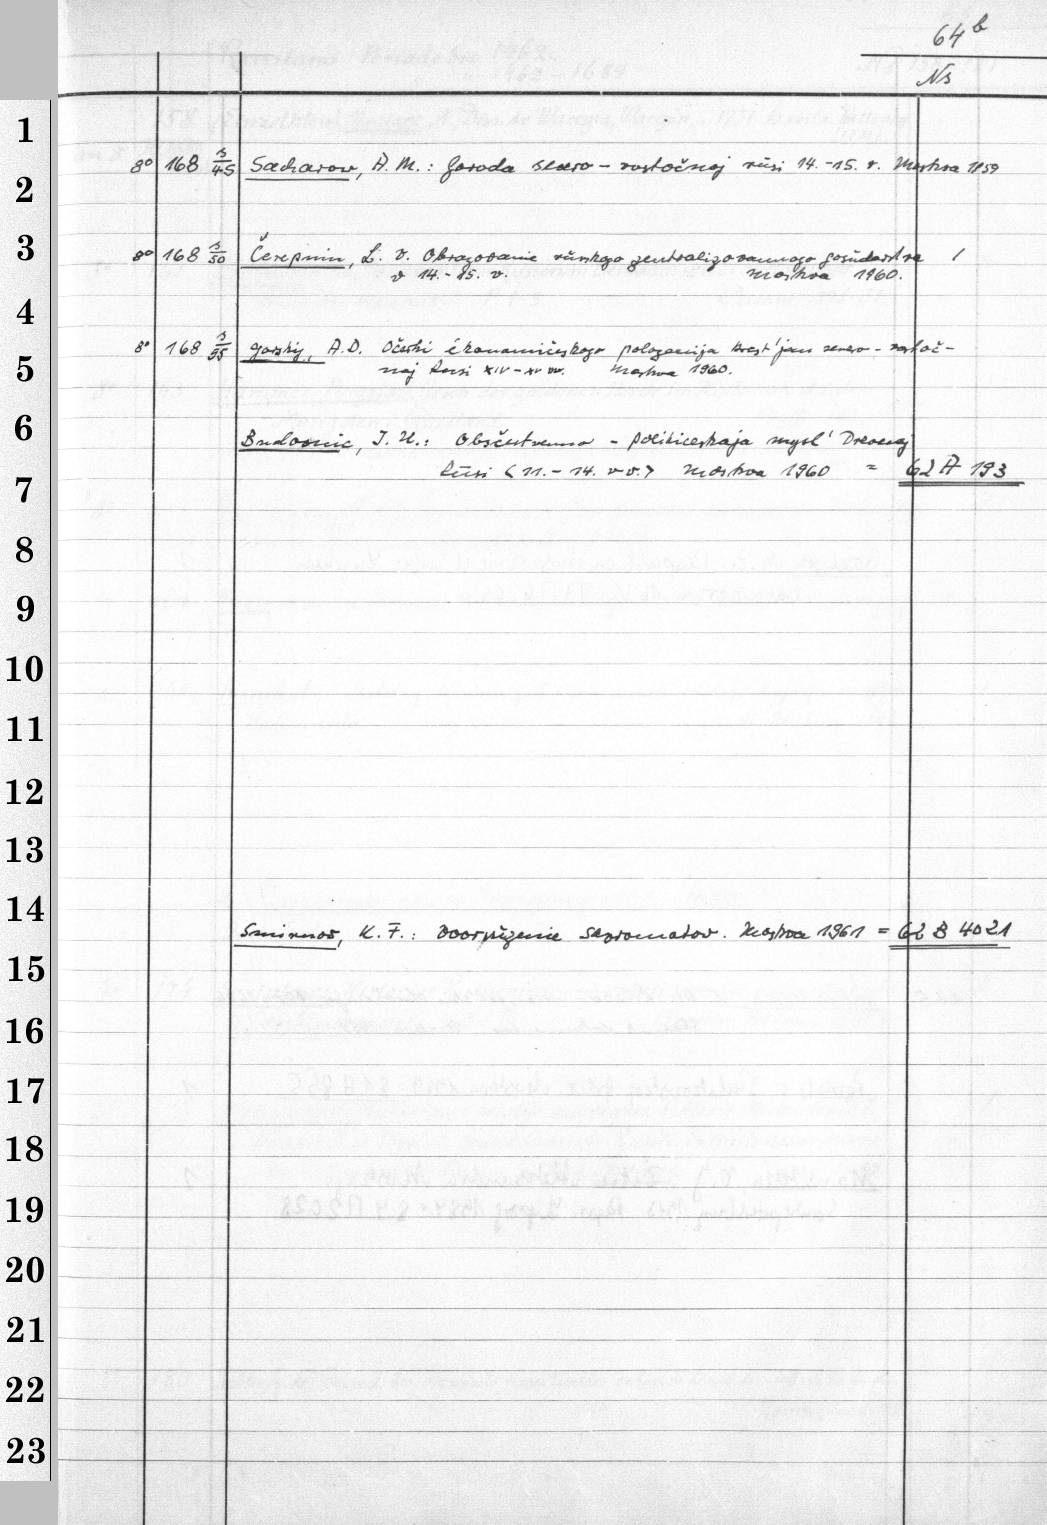 64b
Ns
1
8° 168 s/45 Sacharow, A. M.: Goroda severo-vostočnoj rusi 14.-15. v. Moskva 1959
2
3
8° 168 s/50 Čerepnin, L. v. Obrazovanie russkogo zentralizovannogo gosudarstva 1
v 14.-15. v. Moskva 1960.
4
8° 168 s/55 Gorskij, A.D. Očerki ékonomičeskogo pologenija krest'jan severo-vostoč-
5
noj Rusi XIV-XV vv. Moskva 1960.
6
Budovnic, I. U.: Obščestvenno-politiceskaja mysl' Drevnej
Rusi <11.-14. v v.> Moskva 1960 = 62 A 193
7
8
9
10
11
12
13
14
Smirnov, K. F.: Voorŭženie savromatov. Moskva 1961 = 62 B 4021
15
16
17
18
19
20
21
22
23